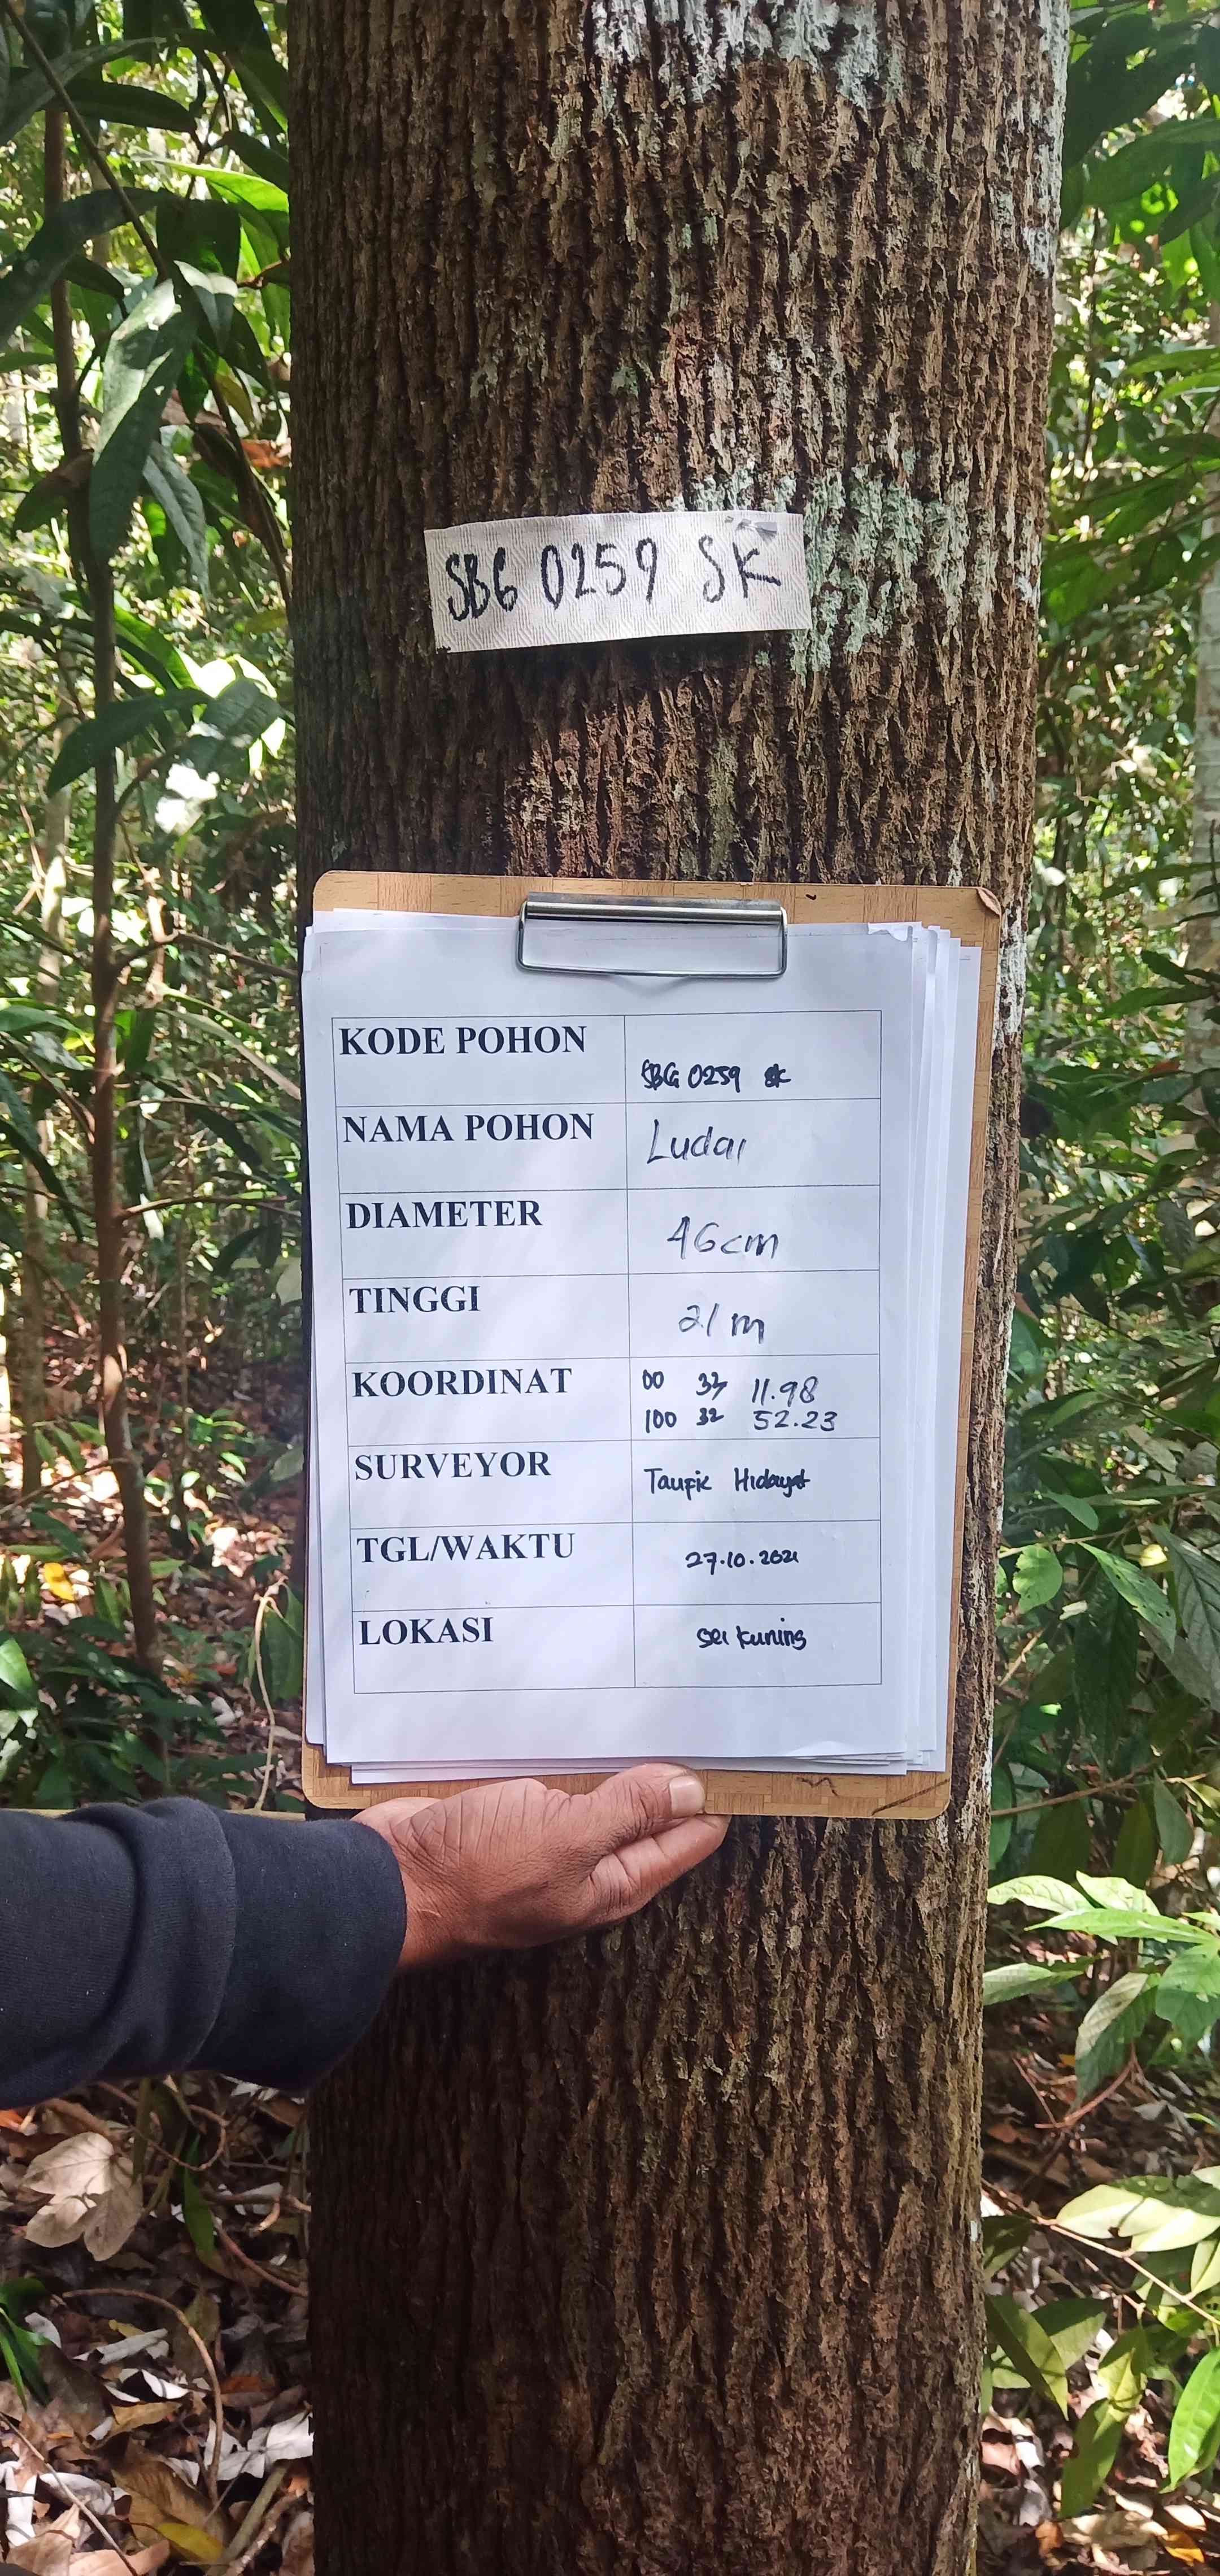 SBG 0259 SK
KODE POHON SBG 0259 SK
NAMA POHON Ludai
DIAMETER 46cm
TINGGI 21 m
KOORDINAT 00 33 11.98
100 32 52.23
SURVEYOR Taufik Hidayat
TGL/WAKTU 27.10.2021
LOKASI Sei Kuning